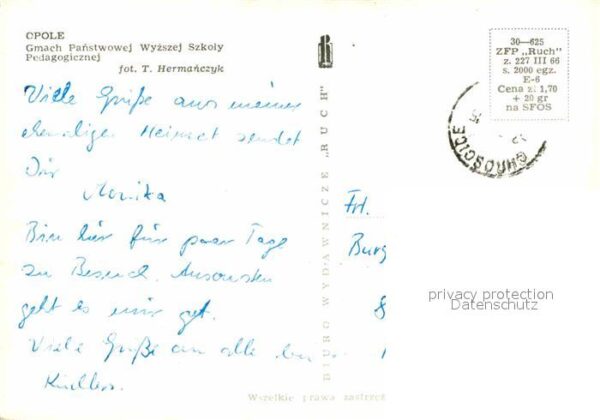 OPOLE
Gmach Państwowej Wyższej Szkoły
Pedagogicznej
fot. T. Hermańczyk
Viele Grüße aus meiner
ehemalige Heimat sendet
Dir
Monika
Bin hier für paar Tage
zu Besuch. Ansonsten
geht es mir gut.
Viele Grüße an alle
BIURO WYDAWNICZE „RUCH"
30—625
ZFP „Ruch"
z. 227 III 66
s. 2000 egz.
E-6
Cena zł 1,70
+ 20 gr
na SFOS
CHRÓŚCICE
Frl.
Burg
8
1
privacy protection
Datenschutz
Wszelkie prawa zastrzeż